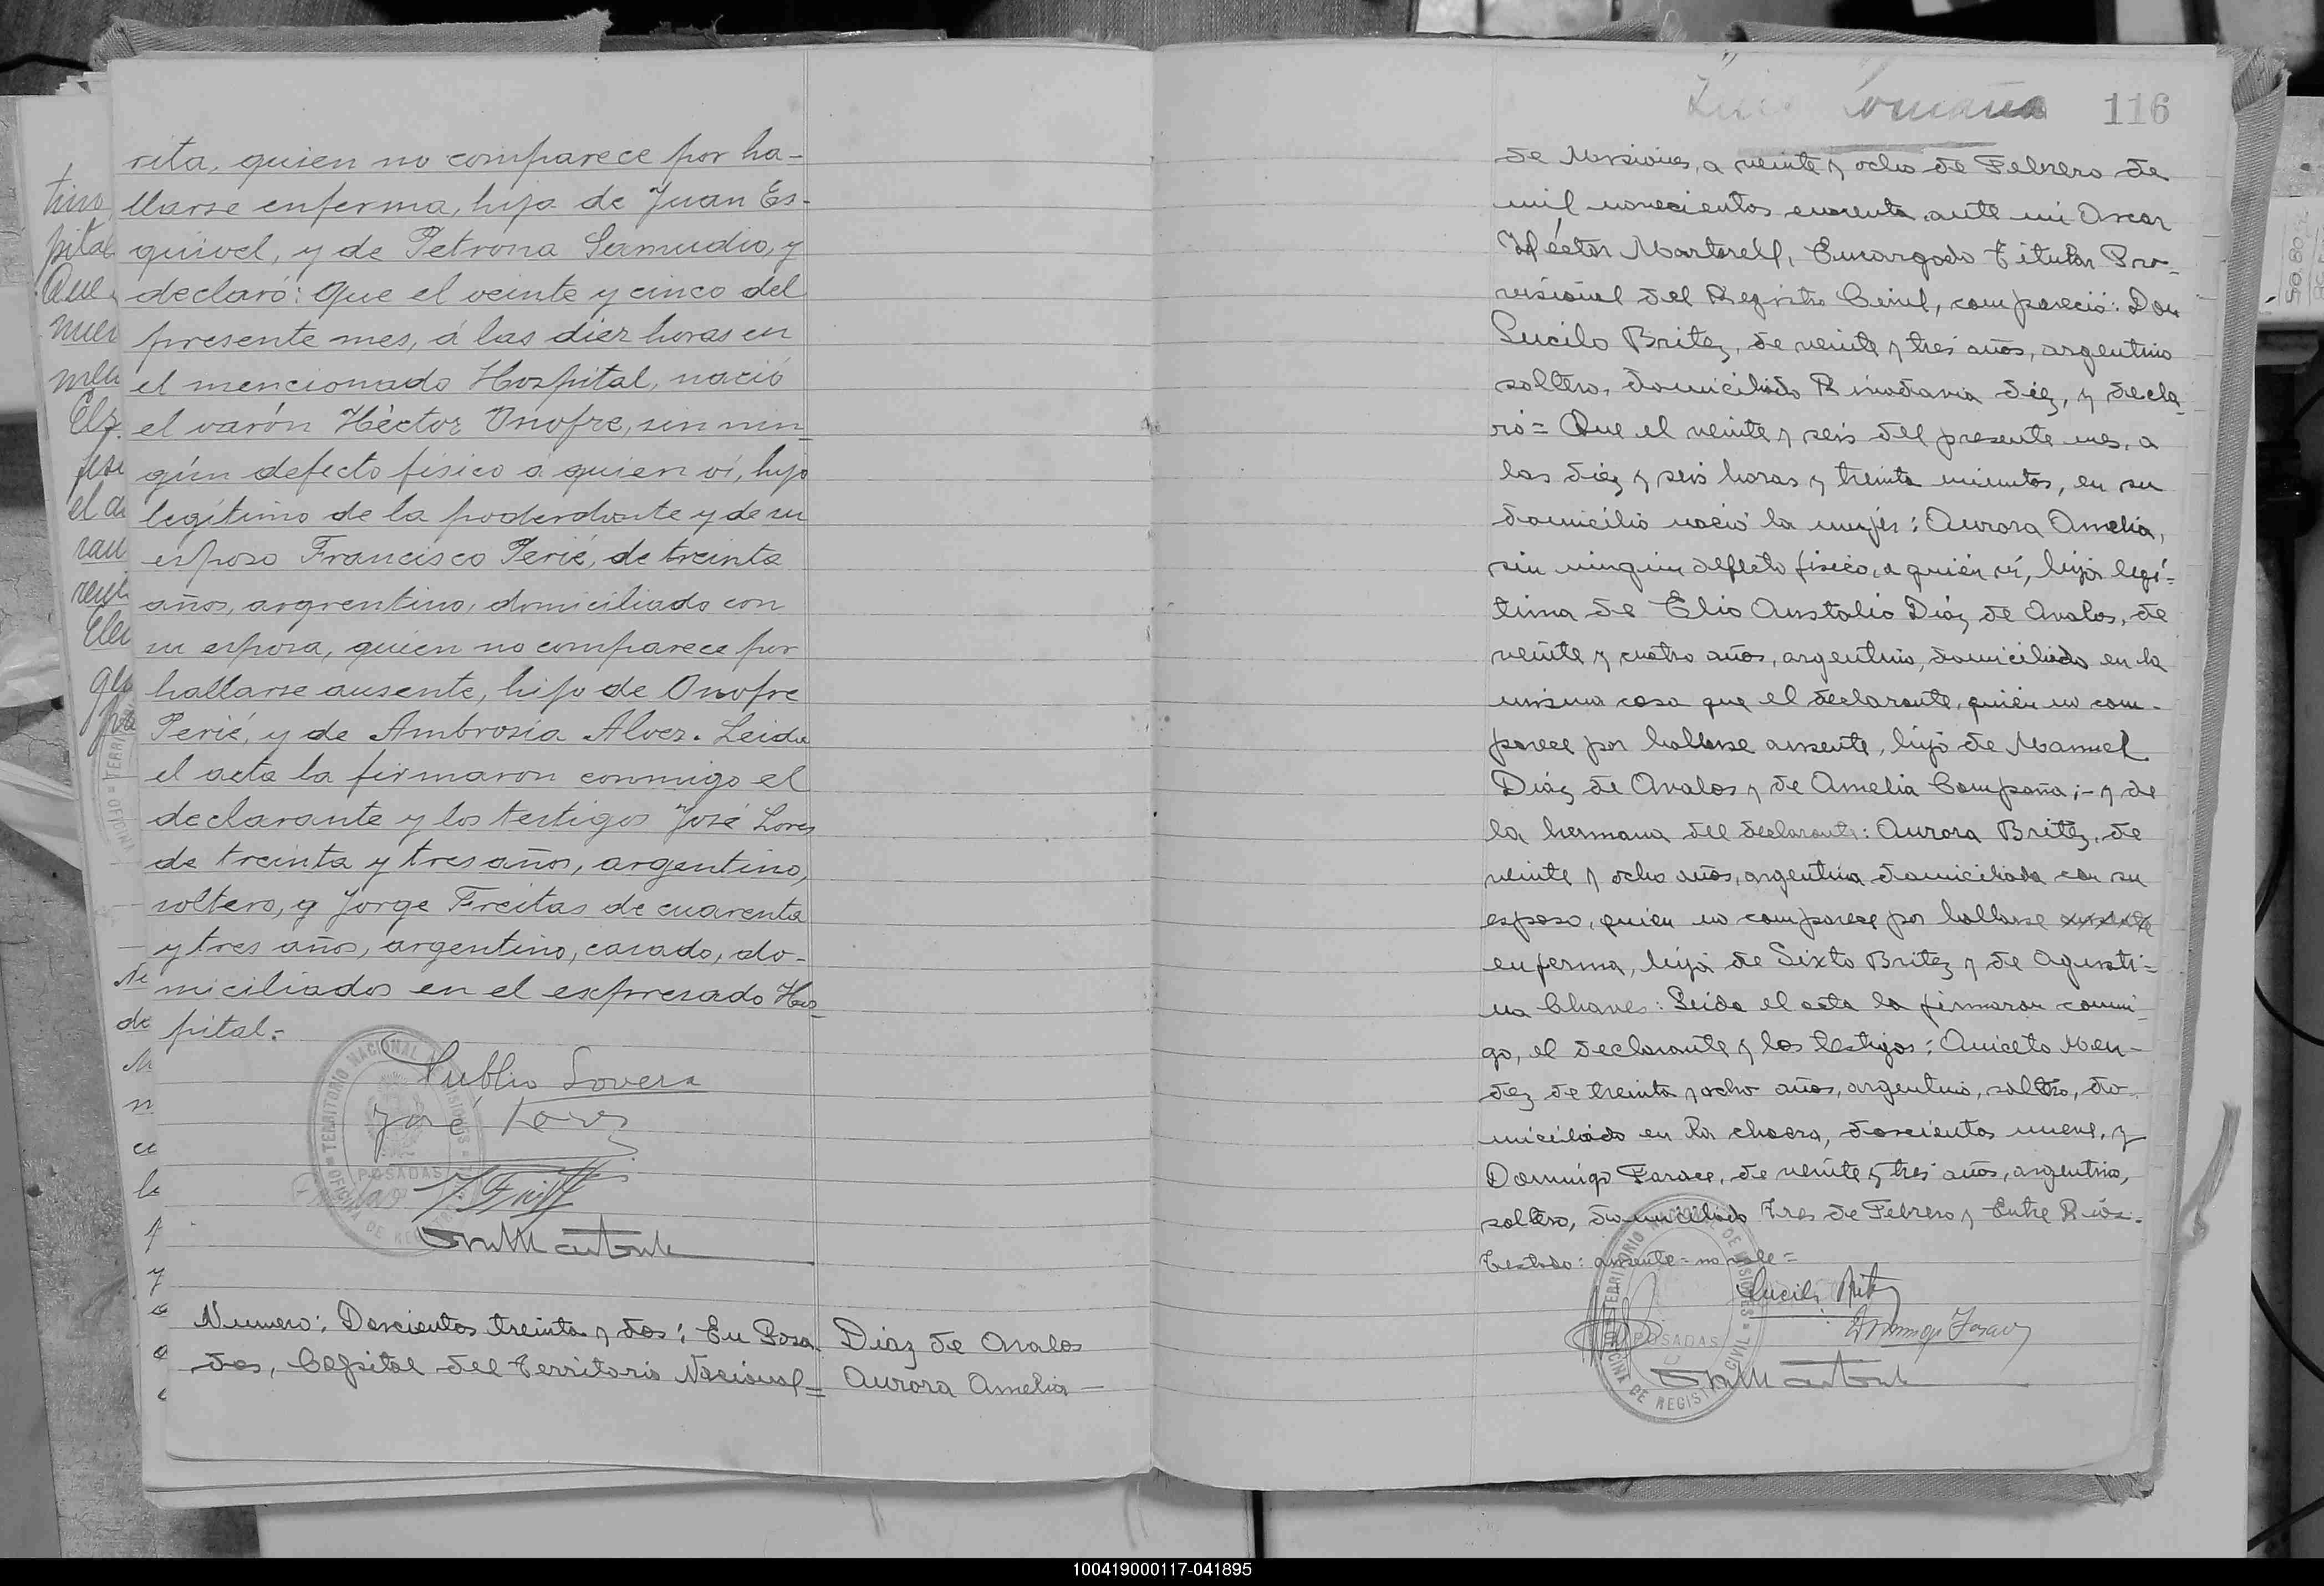 rita, quien no comparece por ha-
llarse enferma, hija de Juan Es-
quivel, y de Petrona Samudio, y
declaró: Que el veinte y cinco del
presente mes, á las diez horas en
el mencionado Hospital, nació
el varón Héctor Onofre, sin nin-
gún defecto físico a quien ví, hijo
legítimo de la poderdante y de su
esposo Francisco Perié, de treinta
años, argrentino, domiciliado con
su esposa, quien no comparece por
hallarse ausente, hijo de Onofre
Perié, y de Ambrosia Alvez. Leida
el acta la firmaron conmigo el
declarante y los testigos José Lores
de treinta y tres años, argentino,
soltero, y Jorge Freitas de cuarenta
y tres años, argentino, casado, do-
miciliados en el expresado Hos-
pital:-
Publio Lovera
José Lores
TERRITORIO NACIONAL DE MISIONES
POSADAS
OFICINA DE REGISTRO
Numero: Doscientos treinta y dos: En Posa-
das, Capital del Territorio Nacional=
Diaz de Avalos
Aurora Amelia—
tino
pital
Que
nuev
el
116
de Misiones, a veinte y ocho de Febrero de
mil novecientos cuarenta, ante mi Oscar
Héctor Martorell, Encargado Titular Pro-
visional del Registro Civil, compareció: Don
Lucilo Britez, de veinte y tres años, argentino
soltero, domiciliado Rivadavia diez, y decla-
ró= Que el veinte y seis del presente mes, a
las diez y seis horas y treinta minutos, en su
domicilio nació la mujer: Aurora Amelia,
sin ningun defecto físico, a quién ví, hija legí=
tima de Elio Austalio Díaz de Avalos, de
veinte y cuatro años, argentino, domiciliado en la
misma casa que el declarante, quién no com-
parece por hallarse ausente, hijo de Manuel
Díaz de Avalos y de Amelia Compaña;- y de
la hermana del declarante: Aurora Britez, de
veinte y ocho años, argentina domiciliada con su
esposo, quien no comparece por hallarse ausente
enferma, hija de Sixto Britez y de Agusti=
na Chaves: Leida el acta la firmaron conmi-
go, el declarante y los testigos: Aniceto Men-
dez de treinta y ocho años, argentino, soltero, do-
miciliado en la chacra, doscientos nueve, y
Domingo Farace, de veinte y tres años, argentino,
soltero, domiciliado Tres de Febrero y Entre Rios.-
Testado: ausente= no vale=
Lucilo Britez
Domingo Farace
TERRITORIO NACIONAL DE MISIONES
POSADAS
OFICINA DE REGISTRO CIVIL
100419000117-041895